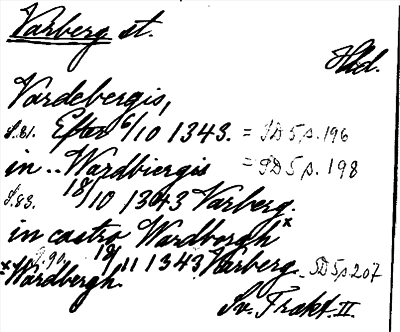 Varberg st.
Hld.
Vardebergis,
S.81. Efter 6/10 1343. = SD 5 p. 196
in .. Wardbiergis = SD 5 p. 198
S.83. 18/10 1343 Varberg.
in castro Wardborgh x
S.90. 18/11 1343 Varberg. SD 5 p 207
x Wardbergh.
Sv. Trakt. II.